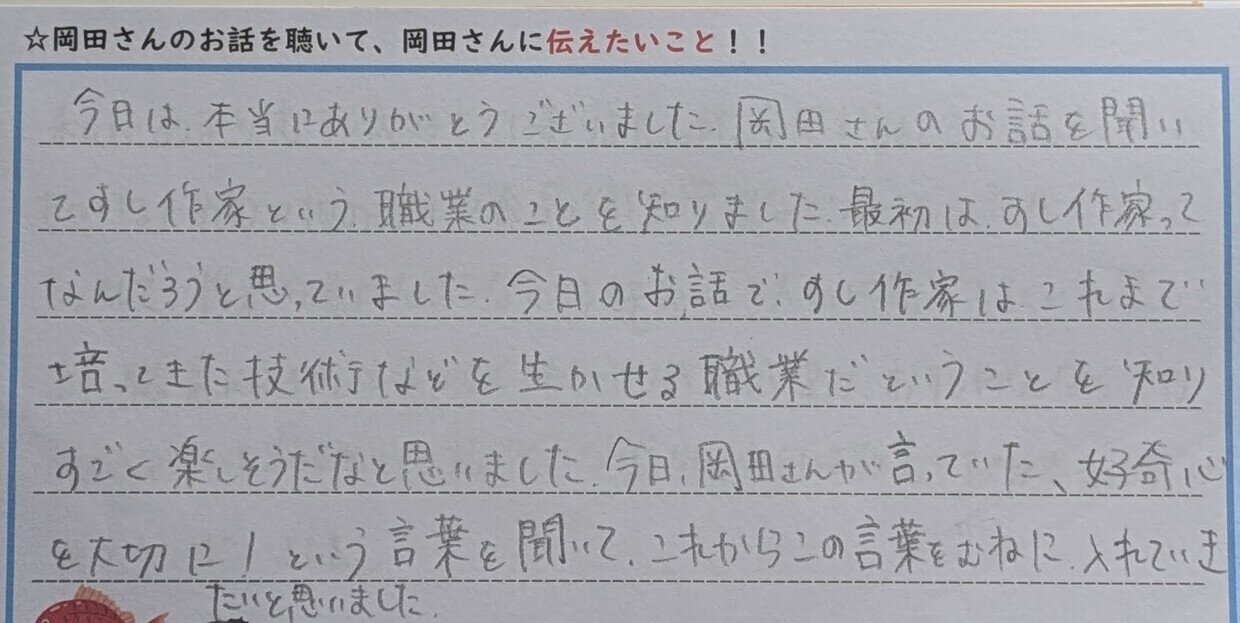 ☆岡田さんのお話を聴いて、岡田さんに伝えたいこと！！
今日は、本当にありがとうございました。岡田さんのお話を聞い
てすし作家という、職業のことを知りました。最初は、すし作家って
なんだろうと思っていました。今日のお話で、すし作家は、これまで
培ってきた技術などを生かせる職業だということを知り
すごく楽しそうだなと思いました。今日、岡田さんが言っていた、好奇心
を大切に！という言葉を聞いて、これからこの言葉をむねに、入れていき
たいと思いました。